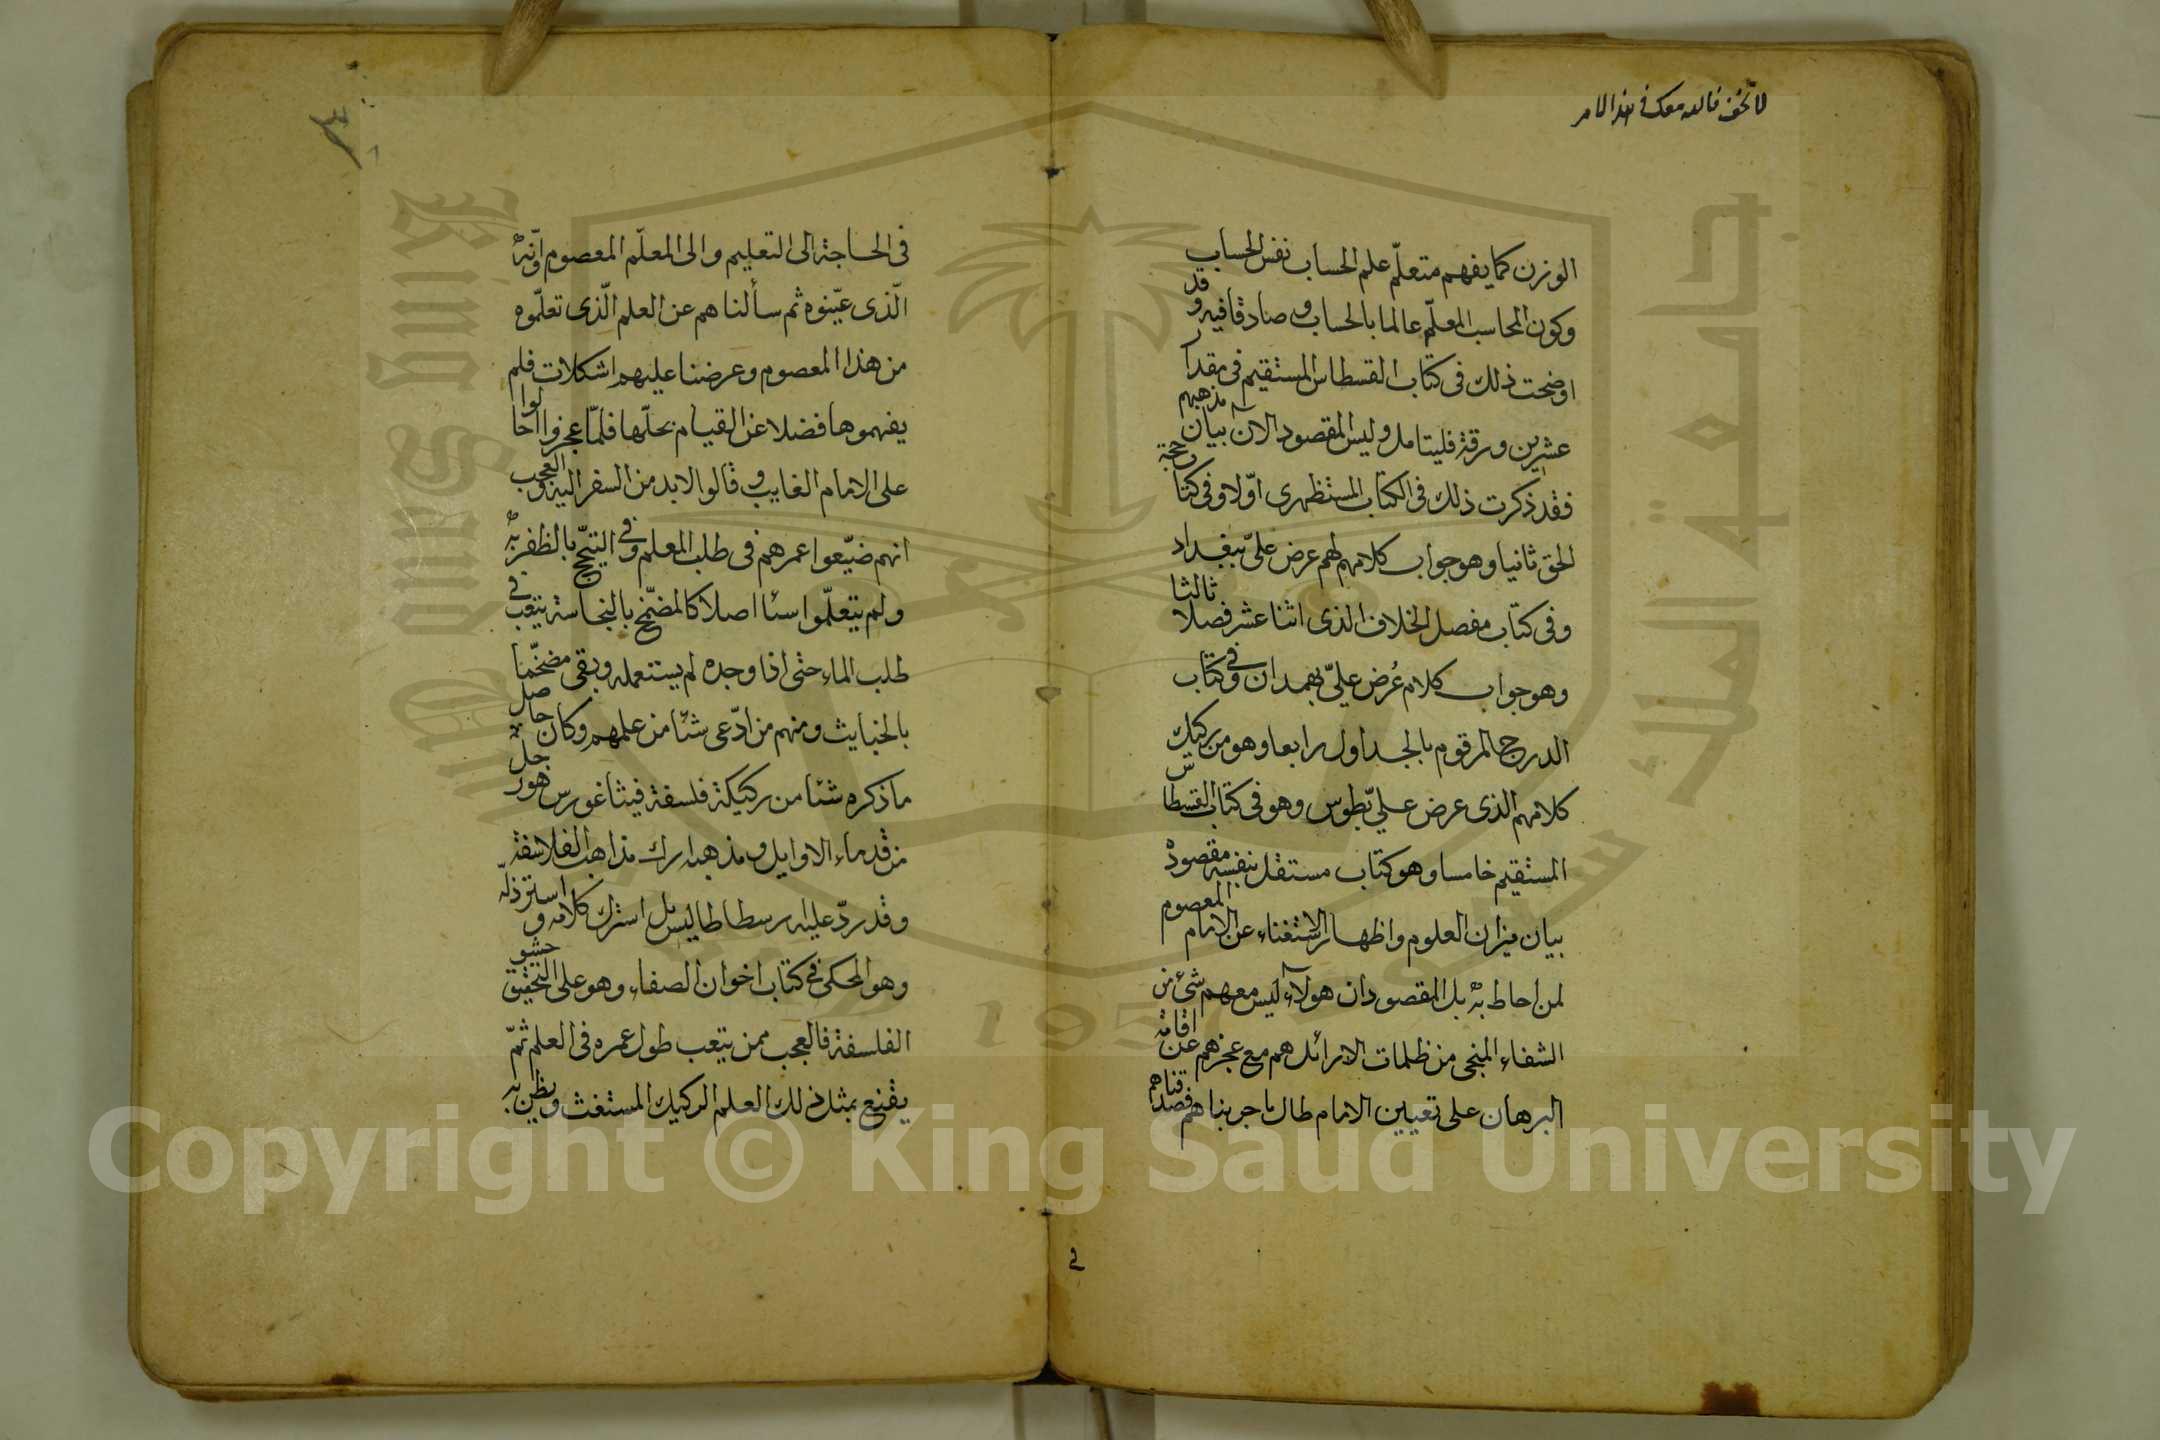 لا تخف فالله معك في هذا الامر
الوزن كما يفهم متعلّم علم الحساب نفس الحساب
وكون المحاسب المعلّم عالما بالحساب و صادقا فيه وقد
اوضحت ذلك فى كتاب القسطاس المستقيم فى مقدار
عشرين ورقة فليتامل وليس المقصود الان بيان مذهبهم
فقد ذكرت ذلك فى الكتاب المستظهرى اوّلا وفى كتاب حجة
الحق ثانيا وهو جواب كلام لهم عرض علىّ ببغداد
وفى كتاب مفصل الخلاف الذى اثنا عشر فصلا ثالثا
وهو جواب كلام عُرض علىّ بهمدان وفى كتاب
الدرج المرقوم بالجداول رابعا وهو من ركيك
كلامهم الذى عرض علىّ بطوس وهو فى كتاب القسطاس
المستقيم خامسا وهو كتاب مستقل بنفسه مقصوده
بيان ميزان العلوم واظهار الاستغناء عن الامام المعصوم
لمن احاط به بل المقصود ان هولآء ليس معهم شئ من
الشفاء المنجى من ظلمات الارائل هم مع عجزهم عن اقامة
البرهان على تعيين الامام طال ما جربناهم فصدقناهم
في
٣
فى الحاجة الى التعليم والى المعلّم المعصوم وانّه
الّذى عيّنوه ثم سألناهم عن العلم الّذى تعلّموه
من هذا المعصوم وعرضنا عليهم اشكلات فلم
يفهموها فضلا عن القيام بحلّها فلمّا عجزوا احالوا
على الامام الغايب و قالوا لابد من السفر اليه والعجب
انهم ضيّعوا عمرهم فى طلب المعلم وفى التبجّح بالظفر به
ولم يتعلّموا سئا اصلا كالمضمّخ بالنجاسة يتعب فى
طلب الماء حتى اذا وجده لم يستعمله وبقى مضخّما
بالخبايث ومنهم من ادّعى شئا من علمهم وكان حاصل
ما ذكره شئا من ركيكة فلسفة فيثاغورس هو رجل
من قدماء الاوايل و مذهبه ارك مذاهب الفلاسفة
وقد ردّ عليه رسطاطاليس بل استرك كلامه و استرذله
وهو المحكى فى كتاب اخوان الصفاء وهو على التحقيق حشو
الفلسفة فالعجب ممن يتعب طول عمره فى العلم ثمّ
يقنع بمثل ذلك العلم الركيك المستغث ويظن به
جامعة الملك سعود
King Saud University
1957
Copyright © King Saud University